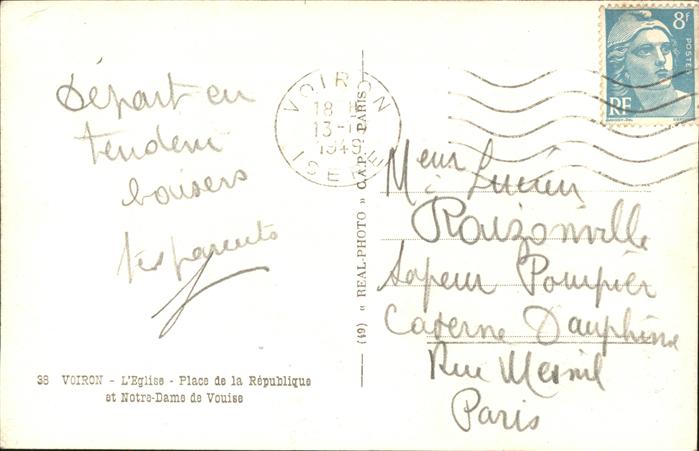 Départ en
tendeur
baisers
tes parents
38 VOIRON - L'Eglise - Place de la République
et Notre-Dame de Vouise
(49) « REAL-PHOTO » C.A.P. PARIS
VOIRON
18 H
13-1
1949
ISERE
8F
POSTES
RF
Meur Lucien
Rouzonville
Sapeur Pompier
Caserne Dauphine
Rue Mesnil
Paris